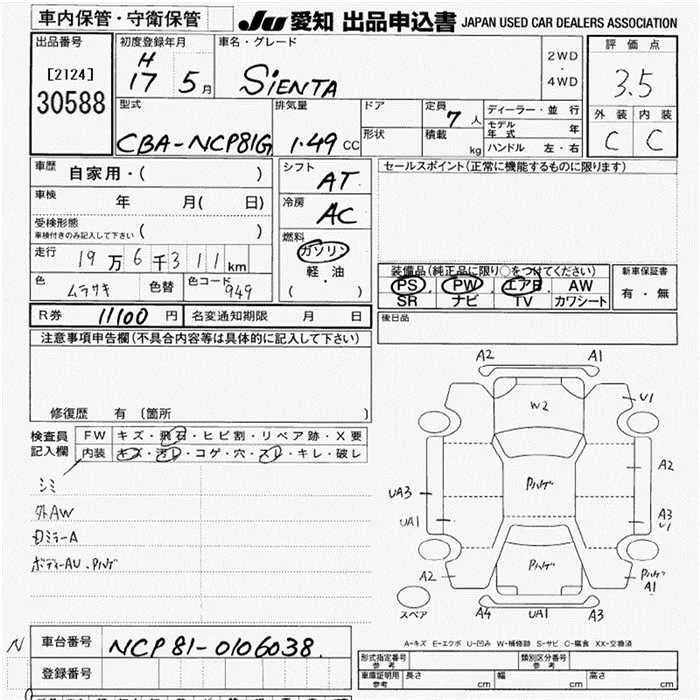 車内保管・守衛保管
JU 愛知 出品申込書 JAPAN USED CAR DEALERS ASSOCIATION
出品番号
[2124]
30588
初度登録年月
H
17 5 月
車名・グレード
SIENTA
2WD
・
4WD
評価点
3.5
外装 内装
C C
型式
CBA-NCP81G
排気量
1.49 CC
ドア
形状
定員
7 人
積載
kg
ディーラー・並行
モデル年式 年
ハンドル 左・右
車歴
自家用・( )
車検
年 月( 日)
受検形態
車検付きのみ記入して下さい ( )
走行
19万6千311km
色
ムラサキ
色替
色コード
949
シフト
AT
冷房
AC
燃料
ガソリン
軽・油
( )
セールスポイント(正常に機能するものに限ります)
装備品(純正品に限り○をつけてください)
PS PW エアB AW
SR ナビ TV カワシート
新車保証書
有・無
後日品
R券 11100 円 名変通知期限 月 日
注意事項申告欄(不具合内容等は具体的に記入して下さい)
修復歴 有 (箇所 )
検査員
記入欄
FW キズ・飛石・ヒビ割・リペア跡・X要
内装 キズ・汚レ・コゲ・穴・スレ・キレ・破レ
シミ
外AW
Dミラ-A
ボディーAU・Pハゲ
A2 A1
W2
U1
A2
Pハゲ
UA3
UA1
A3
U1
A2
Pハゲ
Pハゲ
A1
スペア
A4 UA1 A3
A-キズ E-エクボ U-凹み W-補修跡 S-サビ C-腐食 XX-交換済
N
車台番号
NCP81-0106038.
登録番号
形式指定番号
参考
類別区分番号
参考
車庫証明用
参考
長さ cm 幅 cm 高さ cm